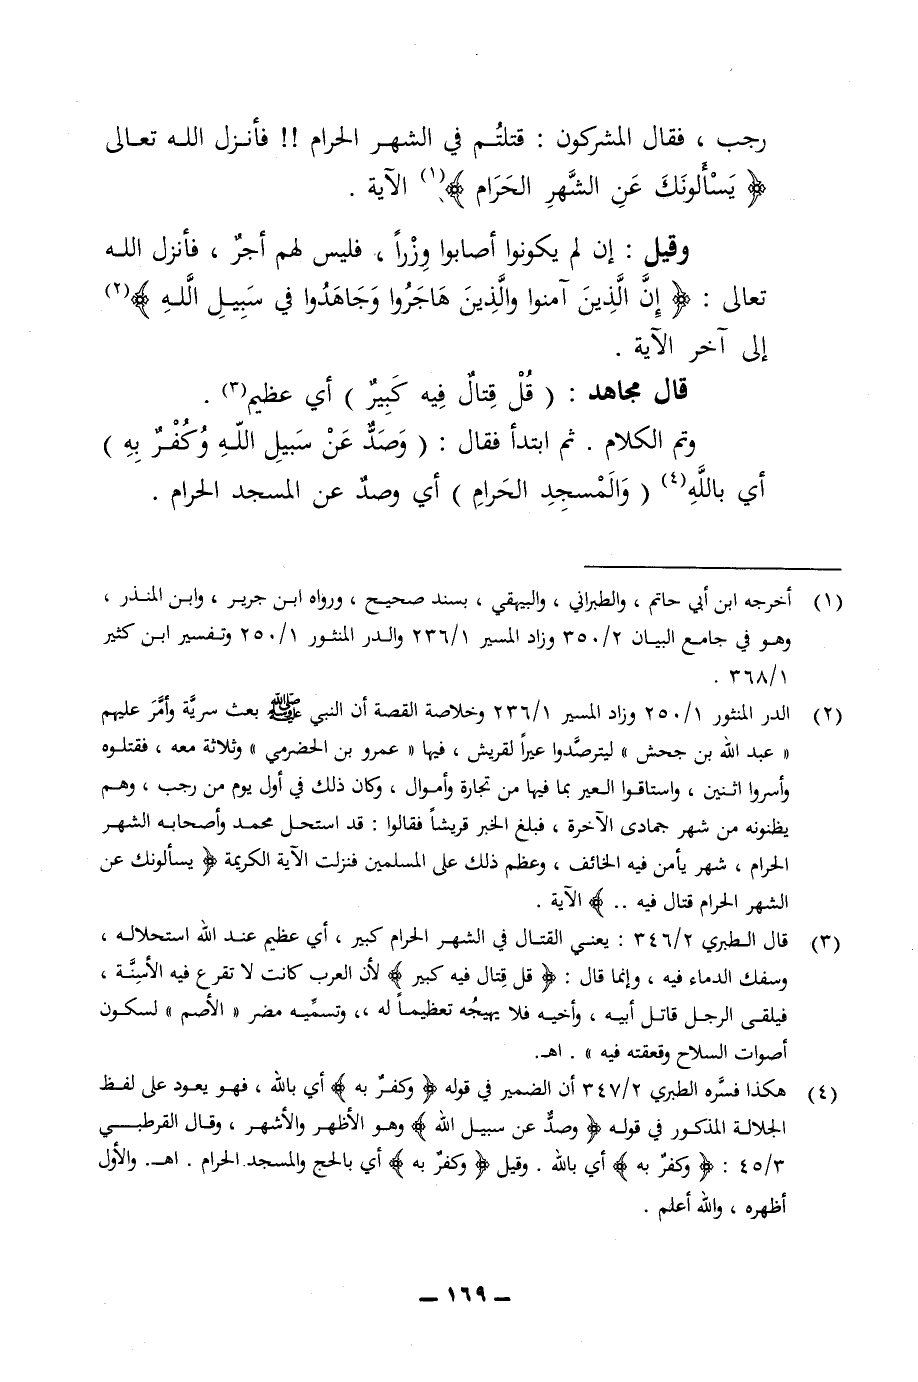 رجب ، فقال المشركون : قتلتُـم في الشهـر الحرام !! فأنـزل اللـه تعـالى
﴿ يَسْأَلونَكَ عَنِ الشَّهرِ الحَرَام ﴾(١) الآية .
وقيل : إن لم يكونوا أصابوا وِزْراً ، فليس لهم أجرٌ ، فأنزل اللـه
تعالى : ﴿ إِنَّ الَّذِينَ آمنوا والَّذِينَ هَاجَرُوا وَجَاهَدُوا في سَبِيلِ اللَّـهِ ﴾(٢)
إلى آخر الآية .
قال مجاهد : ( قُلْ قِتالٌ فِيه كَبِيرٌ ) أي عظيم(٣) .
وتم الكلام . ثم ابتدأ فقال : ( وَصَدٌّ عَنْ سَبيلِ اللّـهِ وُكُفْـرٌ بِهِ )
أي باللَّهِ(٤) ( وَالَمْسجِدِ الحَرامِ ) أي وصدٌ عن المسجد الحرام .
(١) أخرجه ابن أبي حاتم ، والطبراني ، والبيهقي ، بسند صحيـح ، ورواه ابـن جريـر ، وابن المنـذر ،
وهـو في جامـع البيـان ٣٥٠/٢ وزاد المسير ٢٣٦/١ والـدر المنثـور ٢٥٠/١ وتـفسير ابـن كثير
٣٦٨/١ .
(٢) الدر المنثور ٢٥٠/١ وزاد المسير ٢٣٦/١ وخلاصة القصة أن النبي ﷺ بعث سريَّة وأمَّرَ عليهم
« عبد الله بن جحش » ليترصَّدوا عيراً لقريش ، فيها « عمرو بن الحضرمي » وثلاثة معه ، فقتلـوه
وأسروا اثـنين ، واستاقـوا الـعير بما فيها من تجارة وأمـوال ، وكان ذلك في أول يوم من رجب ، وهـم
يظنونه من شهر جمادى الآخرة ، فبلغ الخبر قريشاً فقالوا : قد استحـل محمـد وأصحابـه الشهـر
الحرام ، شهر يأمن فيه الخائف ، وعظم ذلك على المسلمين فنزلت الآية الكريمة ﴿ يسألونك عن
الشهر الحرام قتال فيه .. ﴾ الآية .
(٣) قال الـطبري ٣٤٦/٢ : يعنـي القتـال في الشهـر الحرام كبير ، أي عظيم عنـد الله استحلالـه ،
وسفك الدماء فيه ، وإنما قال : ﴿ قل قِتال فيه كبير ﴾ لأن العرب كانت لا تقرع فيه الأسِنَّـة ،
فيلقى الرجـل قاتـل أبيـه ، وأخيـه فلا يهيجُه تعظيمـاً له ،، وتسمِّيـه مضر « الأصم » لسكـون
أصوات السلاح وقعقته فيه » . اهـ.
(٤) هكذا فسَّره الطبري ٣٤٧/٢ أن الضمير في قوله ﴿ وكفرٌ به ﴾ أي بالله ، فهو يعود على لفظ
الجلالـة المذكـور في قولـه ﴿ وصدٌّ عن سبيـل الله ﴾ وهـو الأظهـر والأشهـر ، وقـال القرطبـي
٤٥/٣ : ﴿ وكفرٌ به ﴾ أي بالله . وقيل ﴿ وكفرٌ به ﴾ أي بالحج والمسجد الحرام . اهـ. والأول
أظهره ، والله أعلم .
ـ ١٦٩ ـ